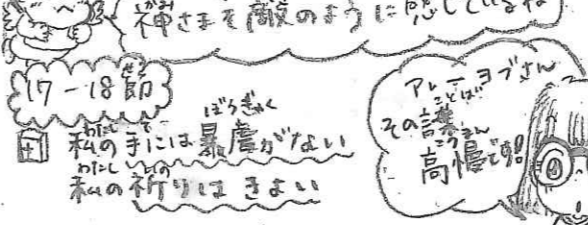 神さまを敵のように感じているね
17-18節
私の手には暴虐がない
私の祈りはきよい
アレーヨブさん
その言葉
高慢です!!